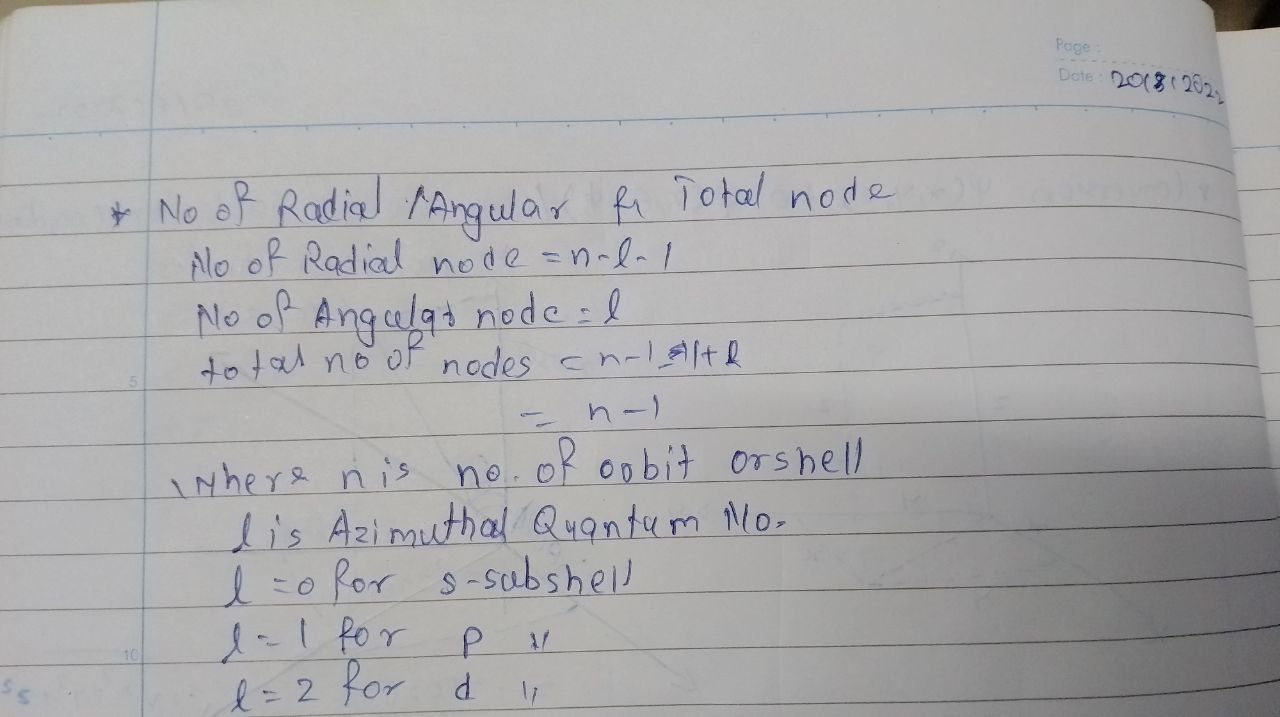 Page :
Date : 20/8/2022
* No of Radial / Angular & Total node
No of Radial node = n-l-1
No of Angular node = l
total no of nodes = n-l-1+l
= n-1
Where n is no. of oobit or shell
l is Azimuthal Quantum No.
l = 0 for s-subshell
5
l = 1 for p "
10
l = 2 for d "